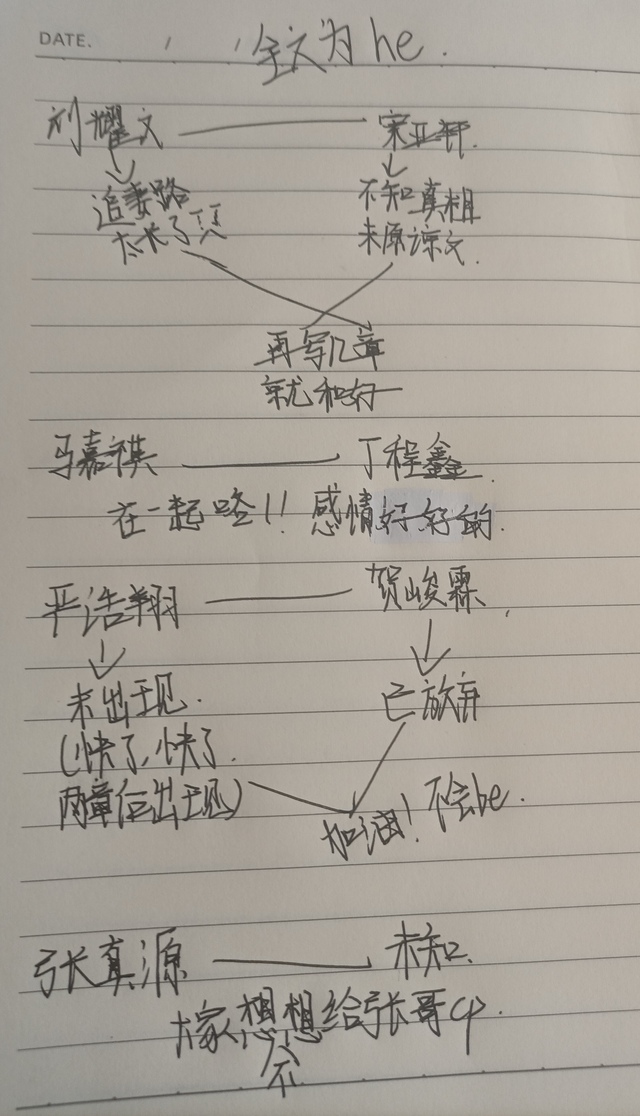 DATE. / /
全文为 he.
刘耀文 宋亚轩.
追妻路 不知真相
太长了 未原谅文.
再写几章
就和好
马嘉祺 丁程鑫.
在一起咯!! 感情好好的.
严浩翔 贺峻霖.
未出现. 已放弃
(快了,快了.
两章后出现)
加油! 不会be.
张真源 未知.
大家想想给张哥cp.
不